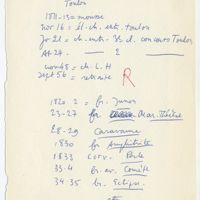 Toulon
1811-13 = mousse
Nov 16 = él. ch. entr. Toulon
Jv 21 = ch. entr. 3e cl. concours Toulon
At 24.
2
nov 48 = ch. L. H
Sept 56 = retraite
R
1820.2 = fr. Junon
23-27 fr
28-29 Caravane
1830 br Amphitrite
1833 corv. Perle
33.4 br. av. Comète
34-35 br. Eclipse.